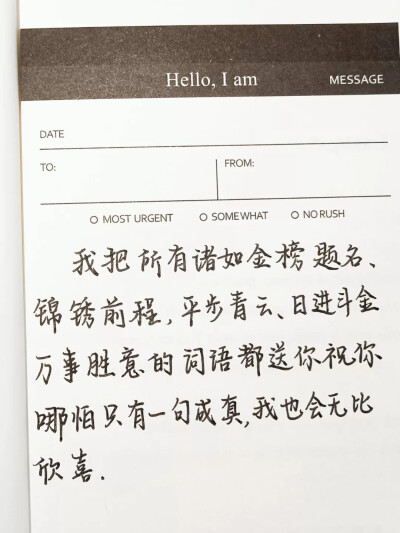 Hello, I am
MESSAGE
DATE
TO:
FROM:
O MOST URGENT O SOMEWHAT O NO RUSH
我把所有诸如金榜题名、
锦锈前程,平步青云、日进斗金
万事胜意的词语都送你祝你
哪怕只有一句成真,我也会无比
欣喜.